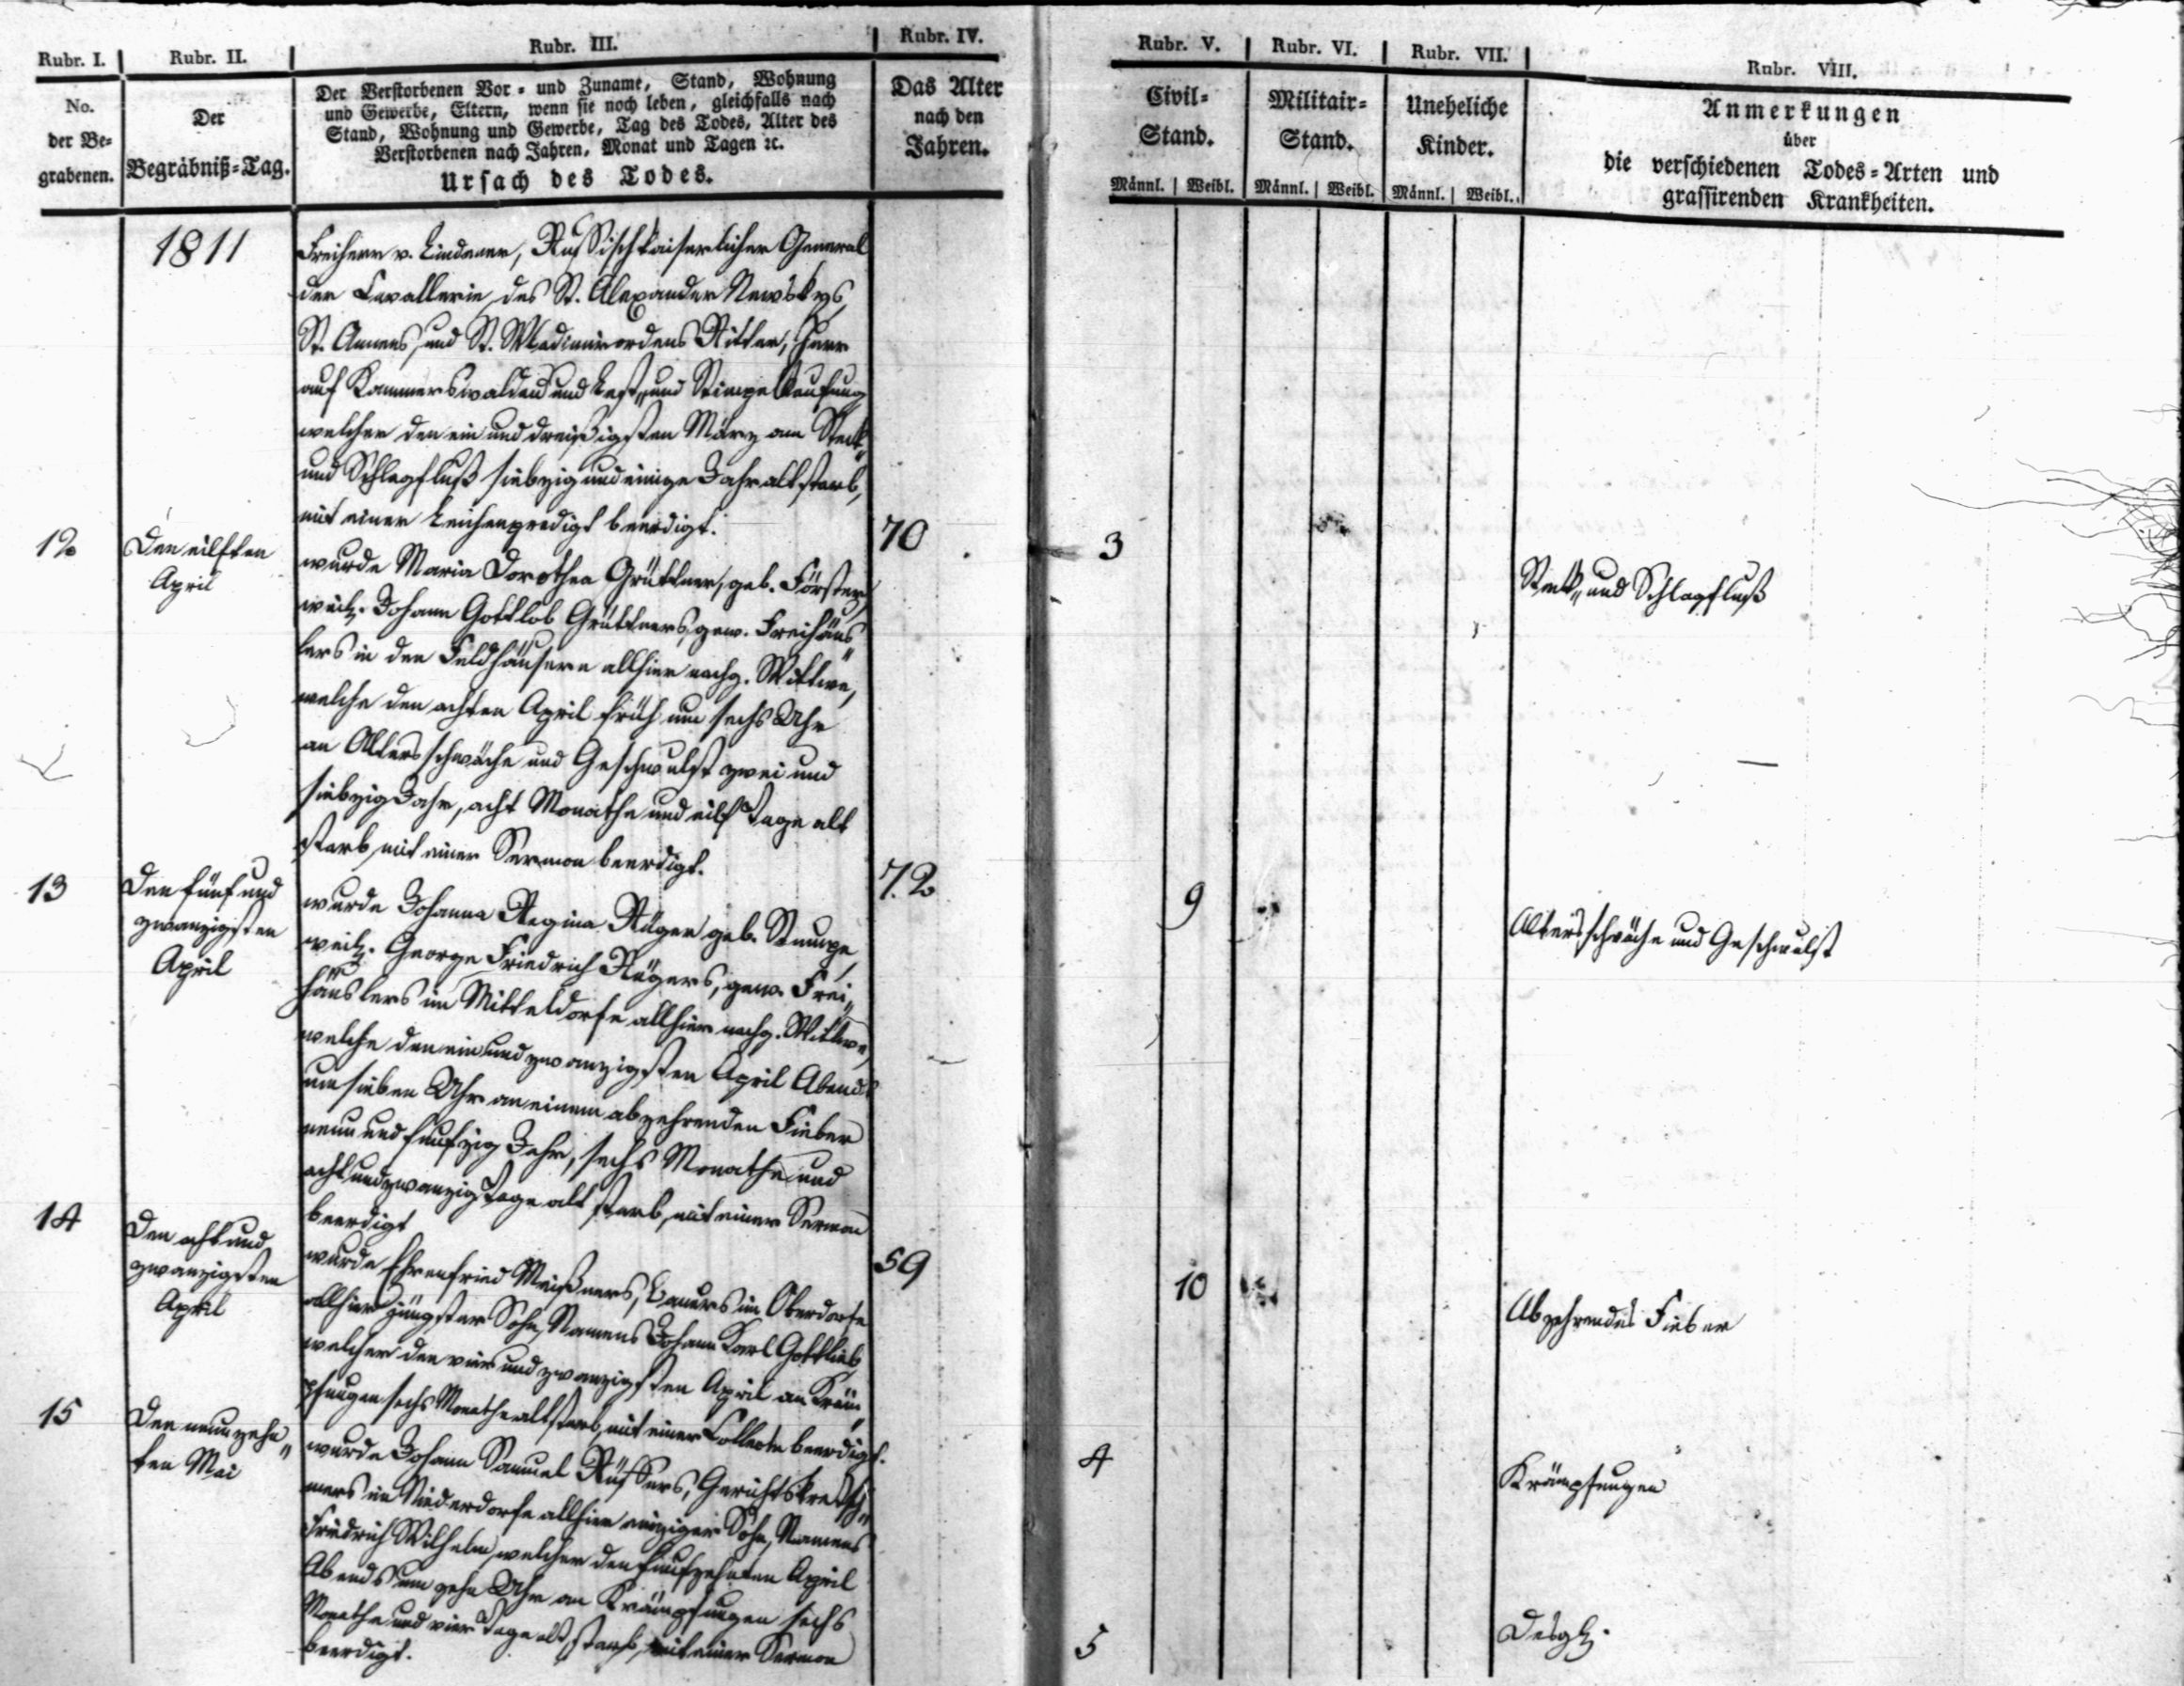 Rubr. I.
No.
der Be-
grabenen.
Rubr. II.
Der
Begräbniß-Tag.
Rubr. III.
Der Verstorbenen Vor- und Zuname, Stand, Wohnung
und Gewerbe, Eltern, wenn sie noch leben, gleichfalls nach
Stand, Wohnung und Gewerbe, Tag des Todes, Alter des
Verstorbenen nach Jahren, Monat und Tagen ꝛc.
Ursach des Todes.
Rubr. IV.
Das Alter
nach den
Jahren.
Rubr. V.
Civil-
Stand.
Männl. | Weibl.
Rubr. VI.
Militair-
Stand.
Männl. | Weibl.
Rubr. VII.
Uneheliche
Kinder.
Männl. | Weibl.
Rubr. VIII.
Anmerkungen
über
die verschiedenen Todes-Arten und
grassirenden Krankheiten.
1811
Freiherr v. Lindener, Russischkaiserlicher General
der Cavallerie, des St. Alexander Newskys,
St. Annens, und St. Wladimirordens Ritter, Herr
auf Kammerswaldau und
welcher den ein und dreißigsten März am Steck-
und Schlagfluß siebzig und einige Jahr alt starb,
mit einer Leichenpredigt beerdigt.
70
3
Steck- und Schlagfluß
12
Den eilften
April
wurde Maria Dorothea Grüttner, geb. Förster,
weil. Johann Gottlob Grüttners, gew. Freihäus-
lers in den Feldhäusern allhier nachg. Wittwe,
welche den achten April früh um sechs Uhr
an Altersschwäche und Geschwulst zwei und
siebzig Jahr, acht Monathe und eilf Tage alt
starb, mit einer Sermon beerdigt.
72
9
Altersschwäche und Geschwulst
13
Den fünf und
zwanzigsten
April
wurde Johanna Regina Rüger geb. Stumpe,
weil. George Friedrich Rügers, gew. Frei-
häuslers im Mitteldorfe allhier nachg. Wittwe,
welche den ein und zwanzigsten April Abends
um sieben Uhr an einem abzehrenden Fieber
neun und funfzig Jahr, sechs Monathe und
acht und zwanzig Tage alt starb, mit einer Sermon
beerdigt
59
10
Abzehrendes Fieber
14
Den acht und
zwanzigsten
April
wurde Ehrenfried Meißners, Bauers im Oberdorfe
allhier jüngster Sohn, Namens Johann Karl Gottlieb,
welcher den vier und zwanzigsten April an Kräm-
pfungen sechs Monathe alt starb, mit einer Collecte beerdigt.
4
Krämpfungen
15
Den neunzehn-
ten Mai
wurde Johann Samuel Rüffers, Gerichtskretsch-
mers im Niederdorfe allhier einziger Sohn, Namens
Friedrich Wilhelm, welcher den funfzehnten April
Abends um zehn Uhr an Krämpfungen sechs
Monathe und vier Tage alt starb, mit einer Sermon
beerdigt.
5
Desgl.